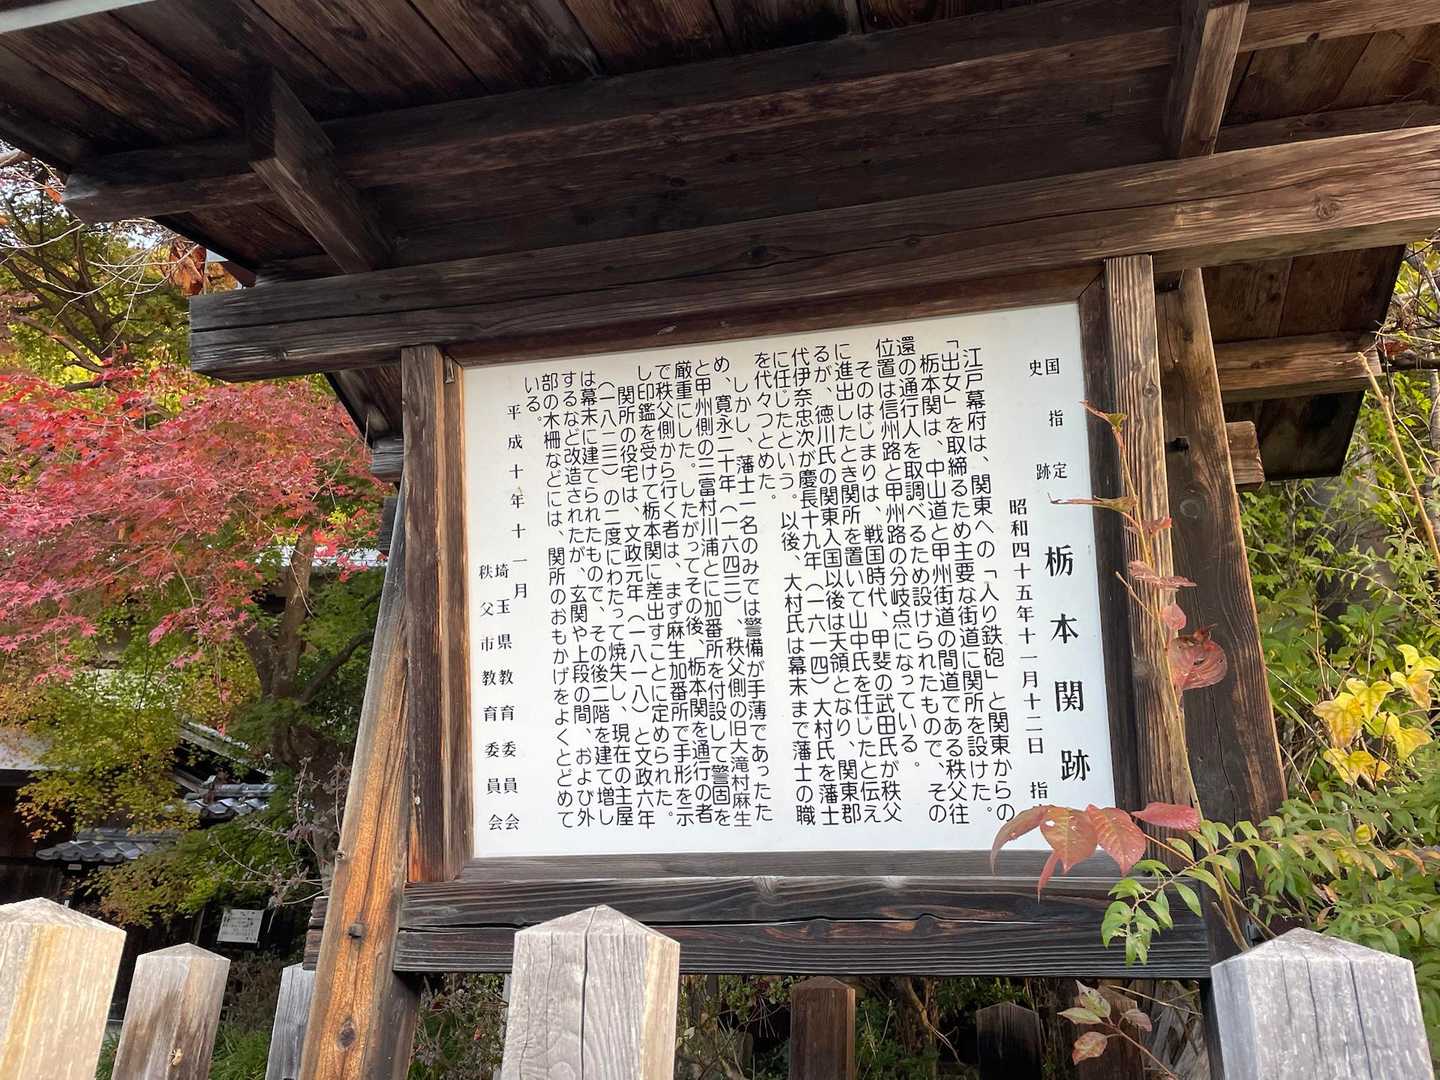 国指定
史跡
栃本関跡
昭和四十五年十一月十二日　指
江戸幕府は、関東への「入り鉄砲」と関東からの
「出女」を取締るため主要な街道に関所を設けた。
栃本関は、中山道と甲州街道の間道である秩父往
還の通行人を取調べるため設けられたもので、その
位置は信州路と甲州路の分岐点になっている。
そのはじまりは、戦国時代、甲斐の武田氏が秩父
に進出したとき関所を置いて山中氏を任じたと伝え
るが、徳川氏の関東入国以後は天領となり、関東郡
代伊奈忠次が慶長十九年（一六一四）大村氏を藩士
に任じたという。以後、大村氏は幕末まで藩士の職
を代々つとめた。
しかし、藩士一名のみでは警備が手薄であったた
め、寛永二十年（一六四三）、秩父側の旧大滝村麻生
と甲州側の三富村川浦とに加番所を付設して警固を
厳重にした。したがってその後、栃本関を通行の者
で秩父側から行く者は、まず麻生加番所で手形を示
し印鑑を受けて栃本関に差出すことに定められた。
関所の役宅は、文政元年（一八一八）と文政六年
（一八二三）の二度にわたって焼失し、現在の主屋
は幕末に建てられたもので、その後二階を建て増し
するなど改造されたが、玄関や上段の間、および外
部の木柵などには、関所のおもかげをよくとどめて
いる。
平成十年十一月
埼玉県教育委員会
秩父市教育委員会